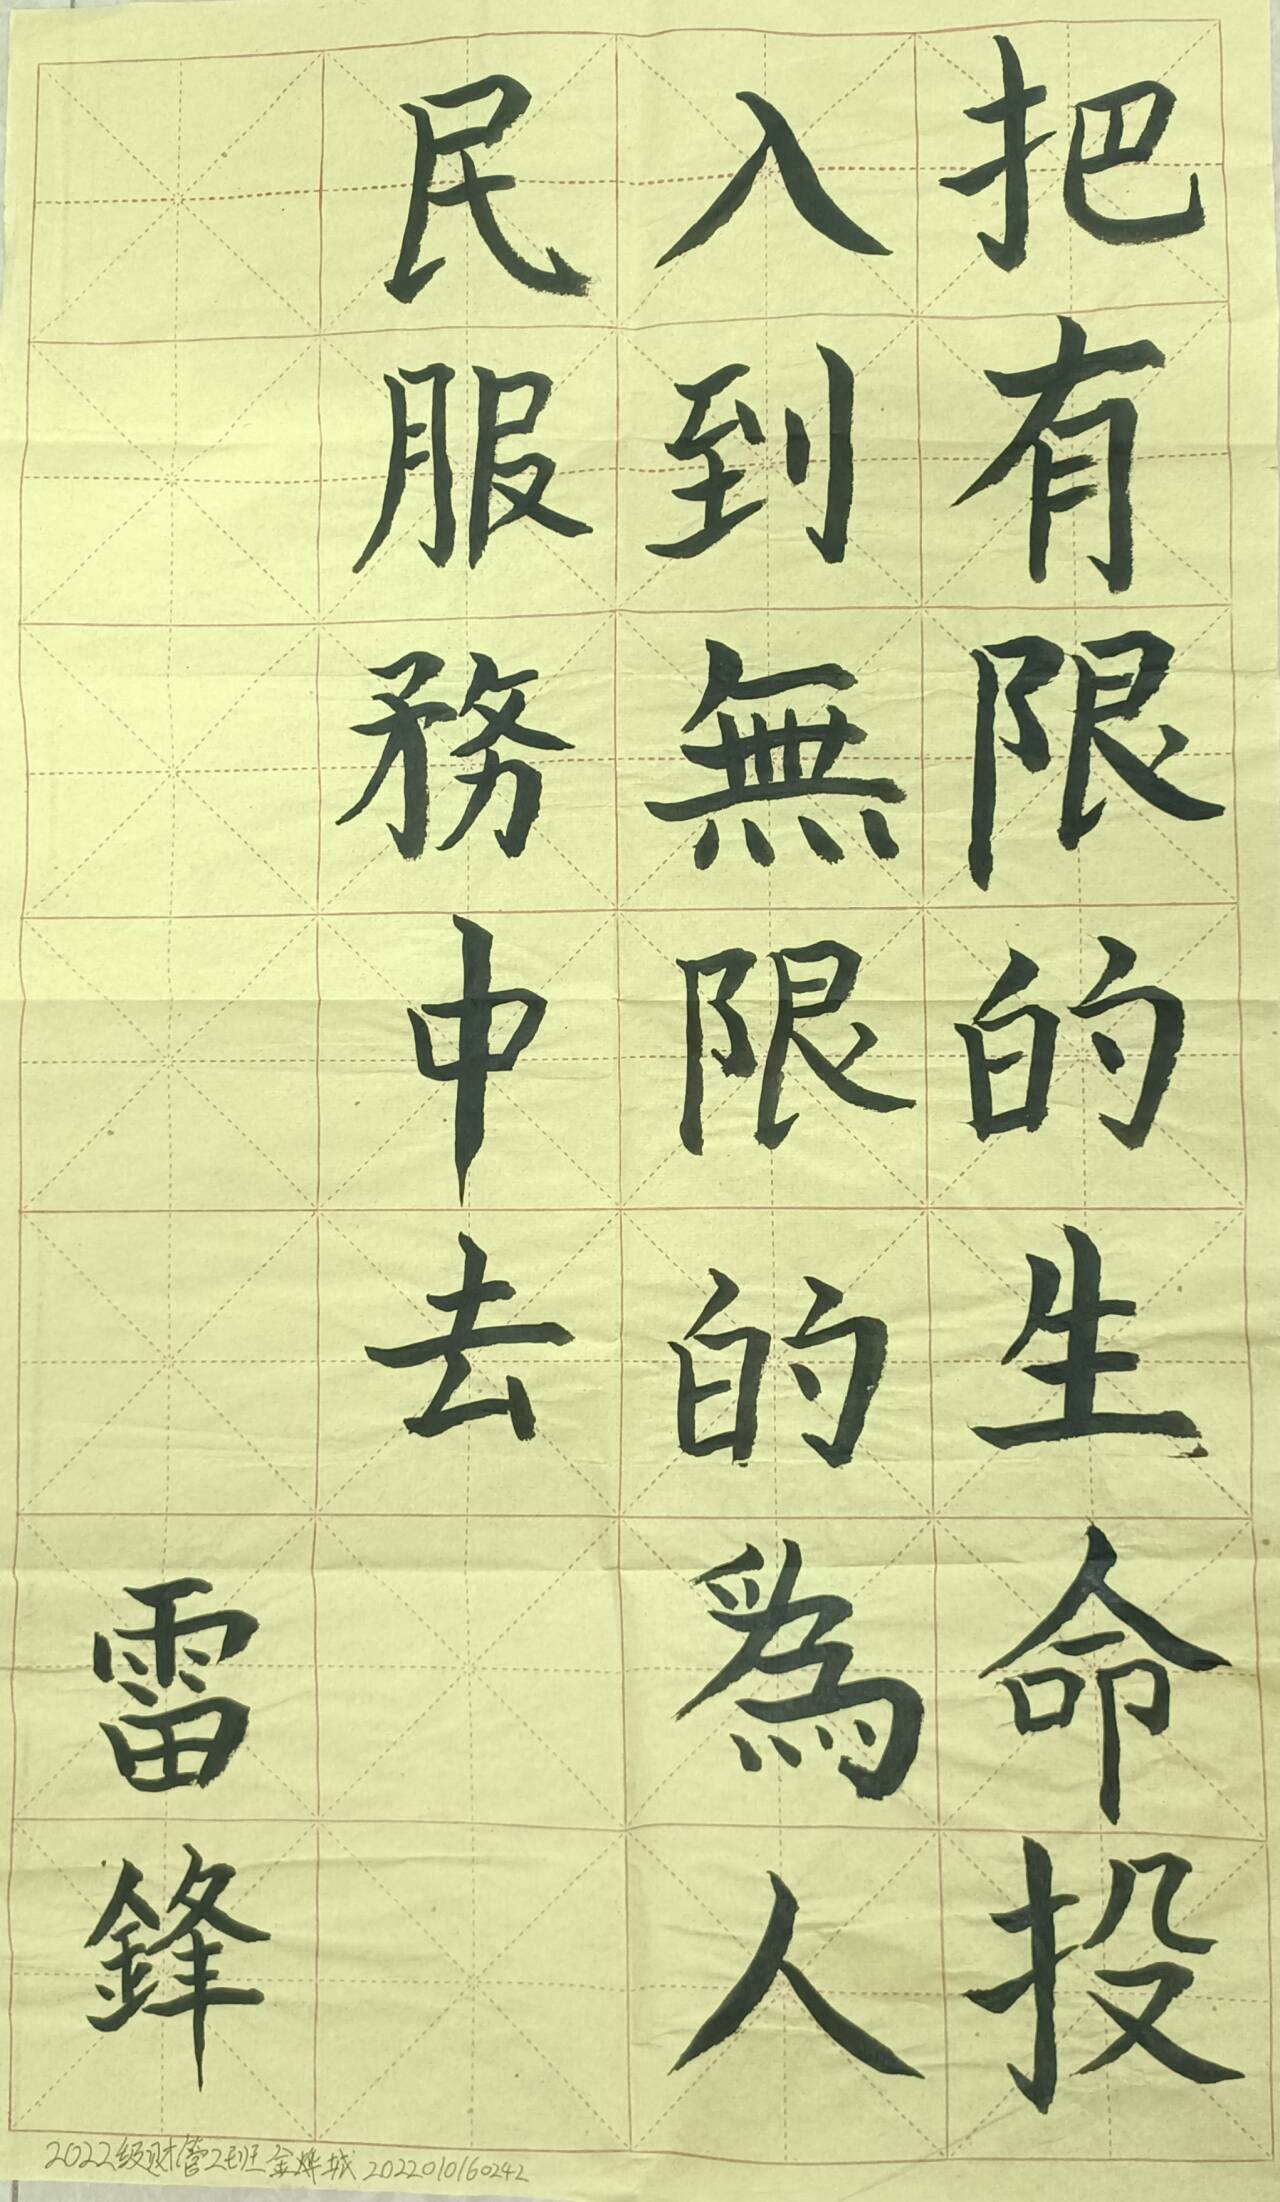 把有限的生命投
入到無限的為人
民服務中去
雷鋒
2022级财管2班金烨城 2022010160242